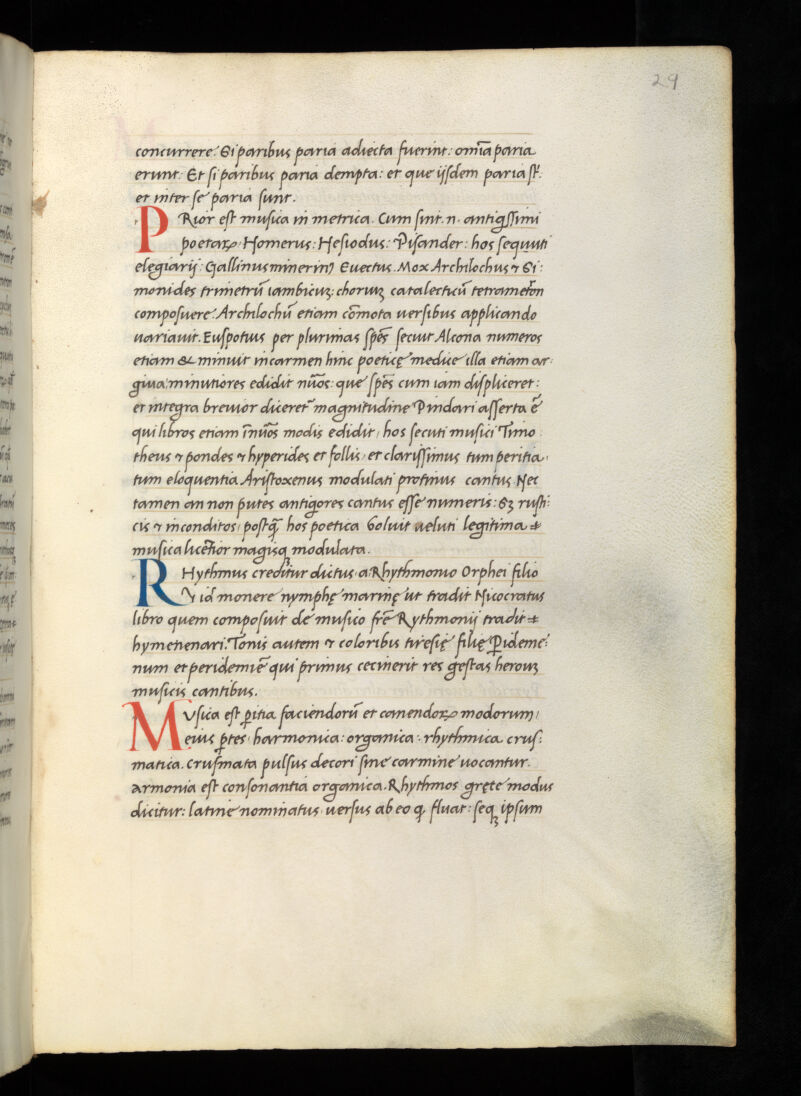 29
concurrere: Si paribus paria adiecta fuerint: om̅ia paria
erunt. Et si paribus paria dempta: et que ijsdem paria st̅:
et inter se paria sunt.
PRior est musica in metrica. Cum sint .n. antiq̅ssimi
poetaꝝ Homerus: Hesiodus: Pisander: hos sequuti
elegiarij: Gallinus minerinꝰ Euectus. Mox Archilochus ⁊ Si:
monides trimetrū iambicuꝫ: choruꝫ catalecticū tetrametꝝ
composuere. Archilochū etiam cōmota uersibus applicando
uariauit. Euspotius per plurimas sp̅es secuit Alcona numeros
etiam & minuit in carmen hinc poeticę medice illa etiam ar:
giua minutiores edidit nūos: que sp̅es cum iam displiceret:
et integra breuior diceret᷑ magnitudine Pindari asserta ē
qui libros etiam ī nūos modis edidit, hos secuti musici Timo
theus ⁊ pondes ⁊ hyperides et follis, et clarissimus tum peritia,
tum eloquentia Aristoxenus modulati protinus cantus Nec
tamen an non putes antiq̅ores cantus esse numeris: Sꝫ rusti:
cis ⁊ inconditos, postq̅ꝫ hos poetica Voluit ueluti legitima ⁊
musica licētior magisqꝫ modulata.
RHythmus creditur dictus a Rhythmonio Orphei filio
⁊ id monere nymphę marinę ut tradit Nicocratus
libro quem composuit de musico fr̅e Rythmonij tradit ⁊
hymenenari. Tonis autem ⁊ coloribus tiresię filię Pideme:
num et peridemiē qui primus cecinerit res gestas herouꝫ
musicis cantibus.
MUsica est p̲itia faciendorū et canendoꝝ modorum,
eius p̲tes, harmonica: organica: rhythmica crus:
matica. crusmata pulsus decori sine carmine uocantur.
armonia est consonantia organica. Rhythmos gręte modus
dicitur: latine nominatus uersus ab eo q̲ fluat: seqꝫ ipsum